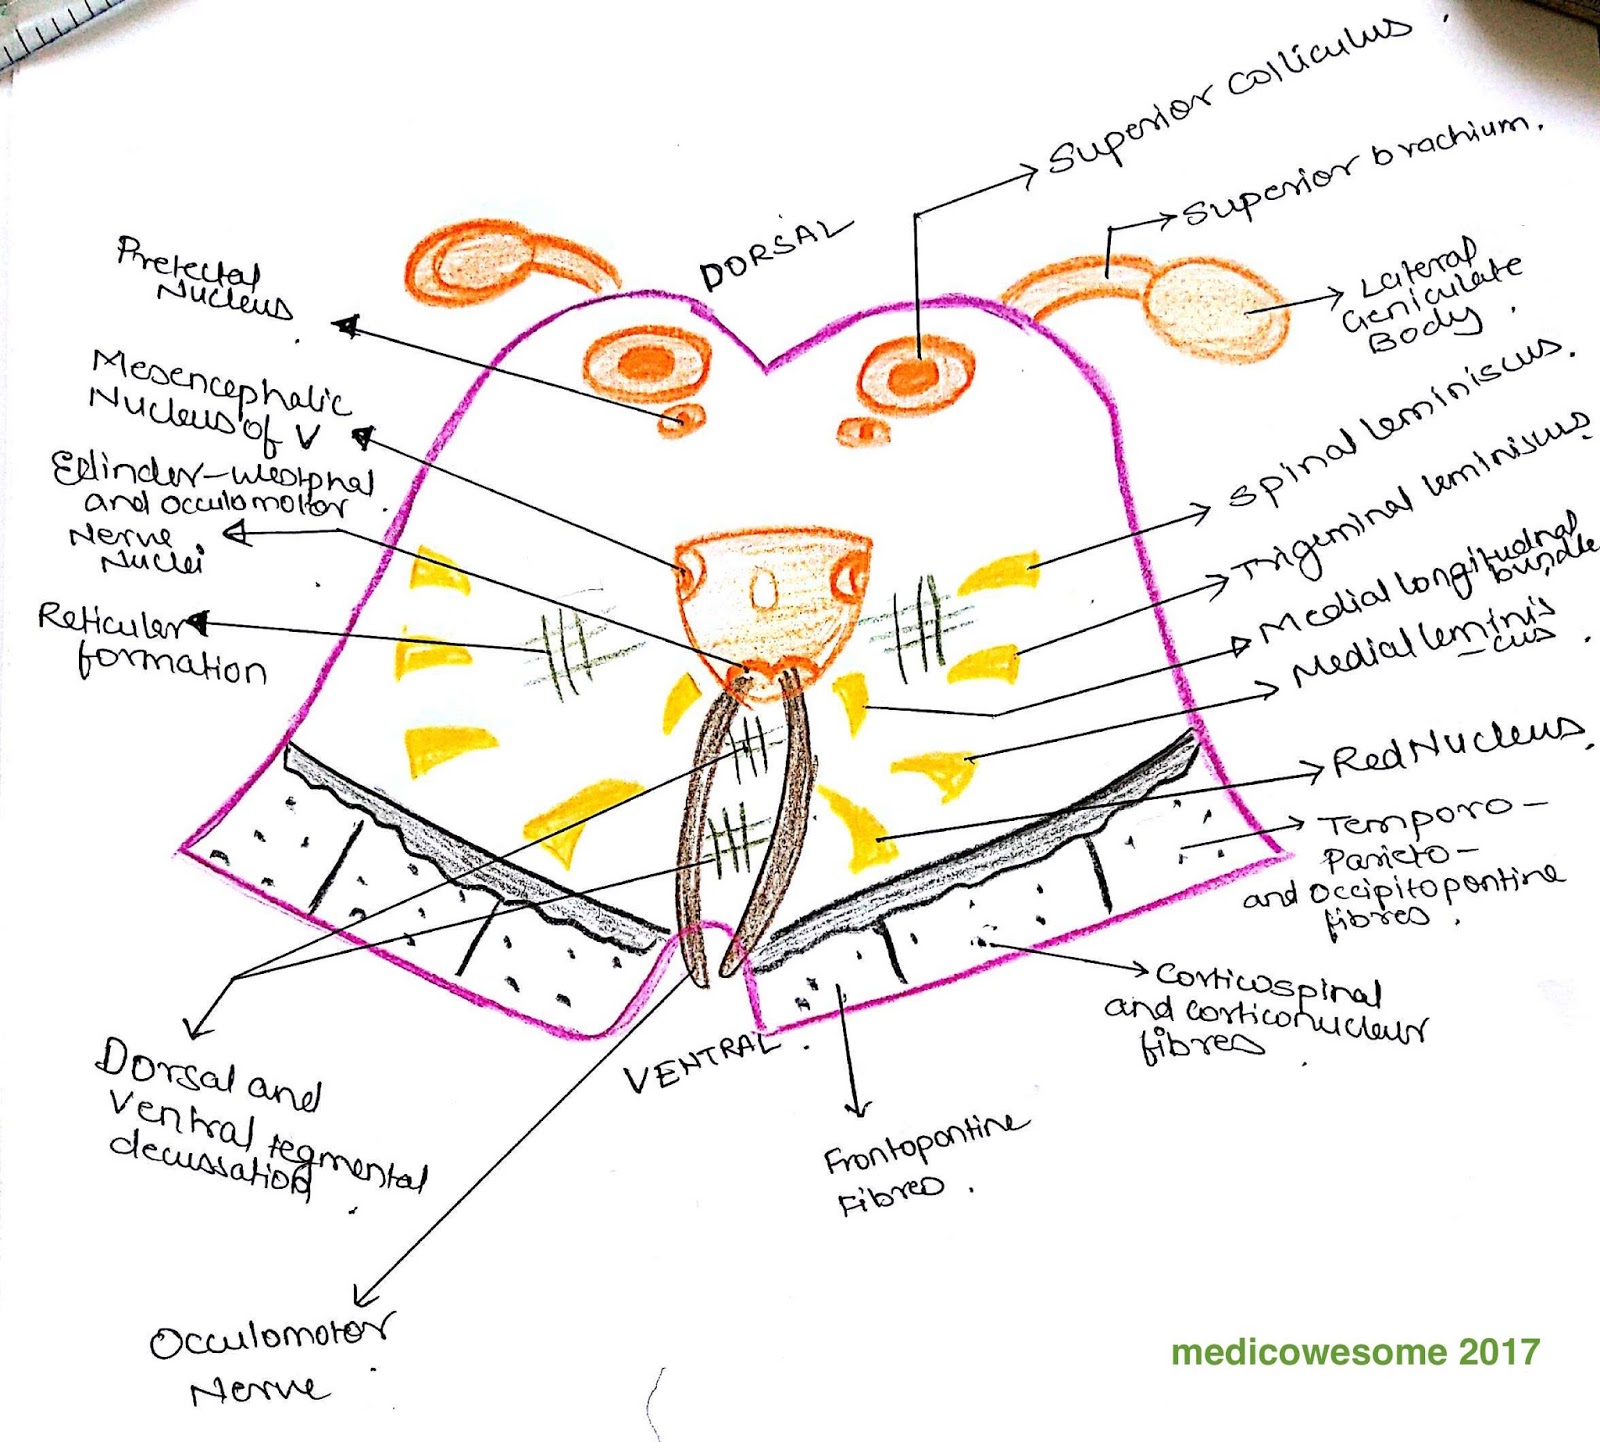 Superior colliculus.
Superior brachium.
DORSAL
Lateral
Geniculate
Body.
Pretectal
Nucleus.
Mesencephalic
Nucleus of V
Edinder-westphal
and occulomotor.
Nerve
Nuclei
Reticular
formation
Spinal leminiscus.
Trigeminal leminiscus
Medial longitudnal
bundle
Medial leminis
-cus.
Red Nucleus.
Temporo-
Parieto-
and occipitopontine
fibres.
Corticospinal
and corticonuclear
fibres.
VENTRAL.
Frontopontine
Fibres.
Dorsal and
Ventral tegmental
decussation.
Occulomotor
Nerve.
medicowesome 2017